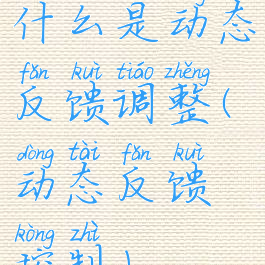 什么是动态
fǎn kuì tiáo zhěng
反馈调整(
dòng tài fǎn kuì
动态反馈
kòng zhì
控制)